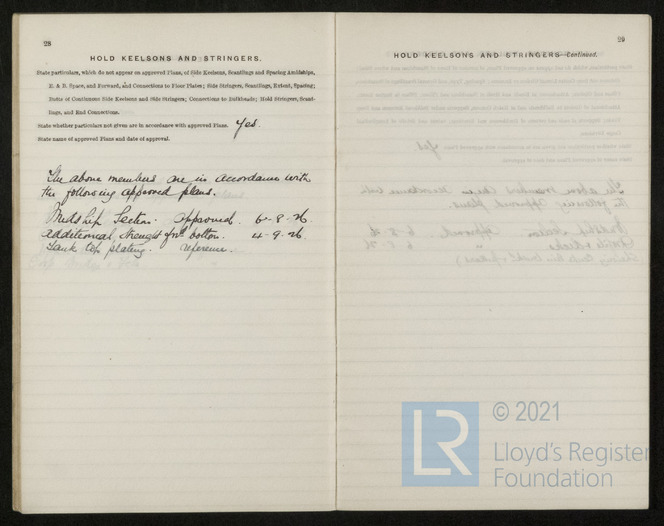 28
HOLD KEELSONS AND STRINGERS.
State particulars, which do not appear on approved Plans, of Side Keelsons, Scantlings and Spacing Amidships,
E. & B. Space, and Forward, and Connections to Floor Plates; Side Stringers, Scantlings, Extent, Spacing;
Butts of Continuous Side Keelsons and Side Stringers; Connections to Bulkheads; Hold Stringers, Scant-
lings, and End Connections.
State whether particulars not given are in accordance with approved Plans. Yes.
State name of approved Plans and date of approval.
The above members are in accordance with
the following approved plans.
Midship Section. approved. 6-8-26.
additional strengt forwd bottom. 4-9-26.
Tank top plating. reference.
29
HOLD KEELSONS AND STRINGERS—Continued.
LR
© 2021
Lloyd's Register
Foundation